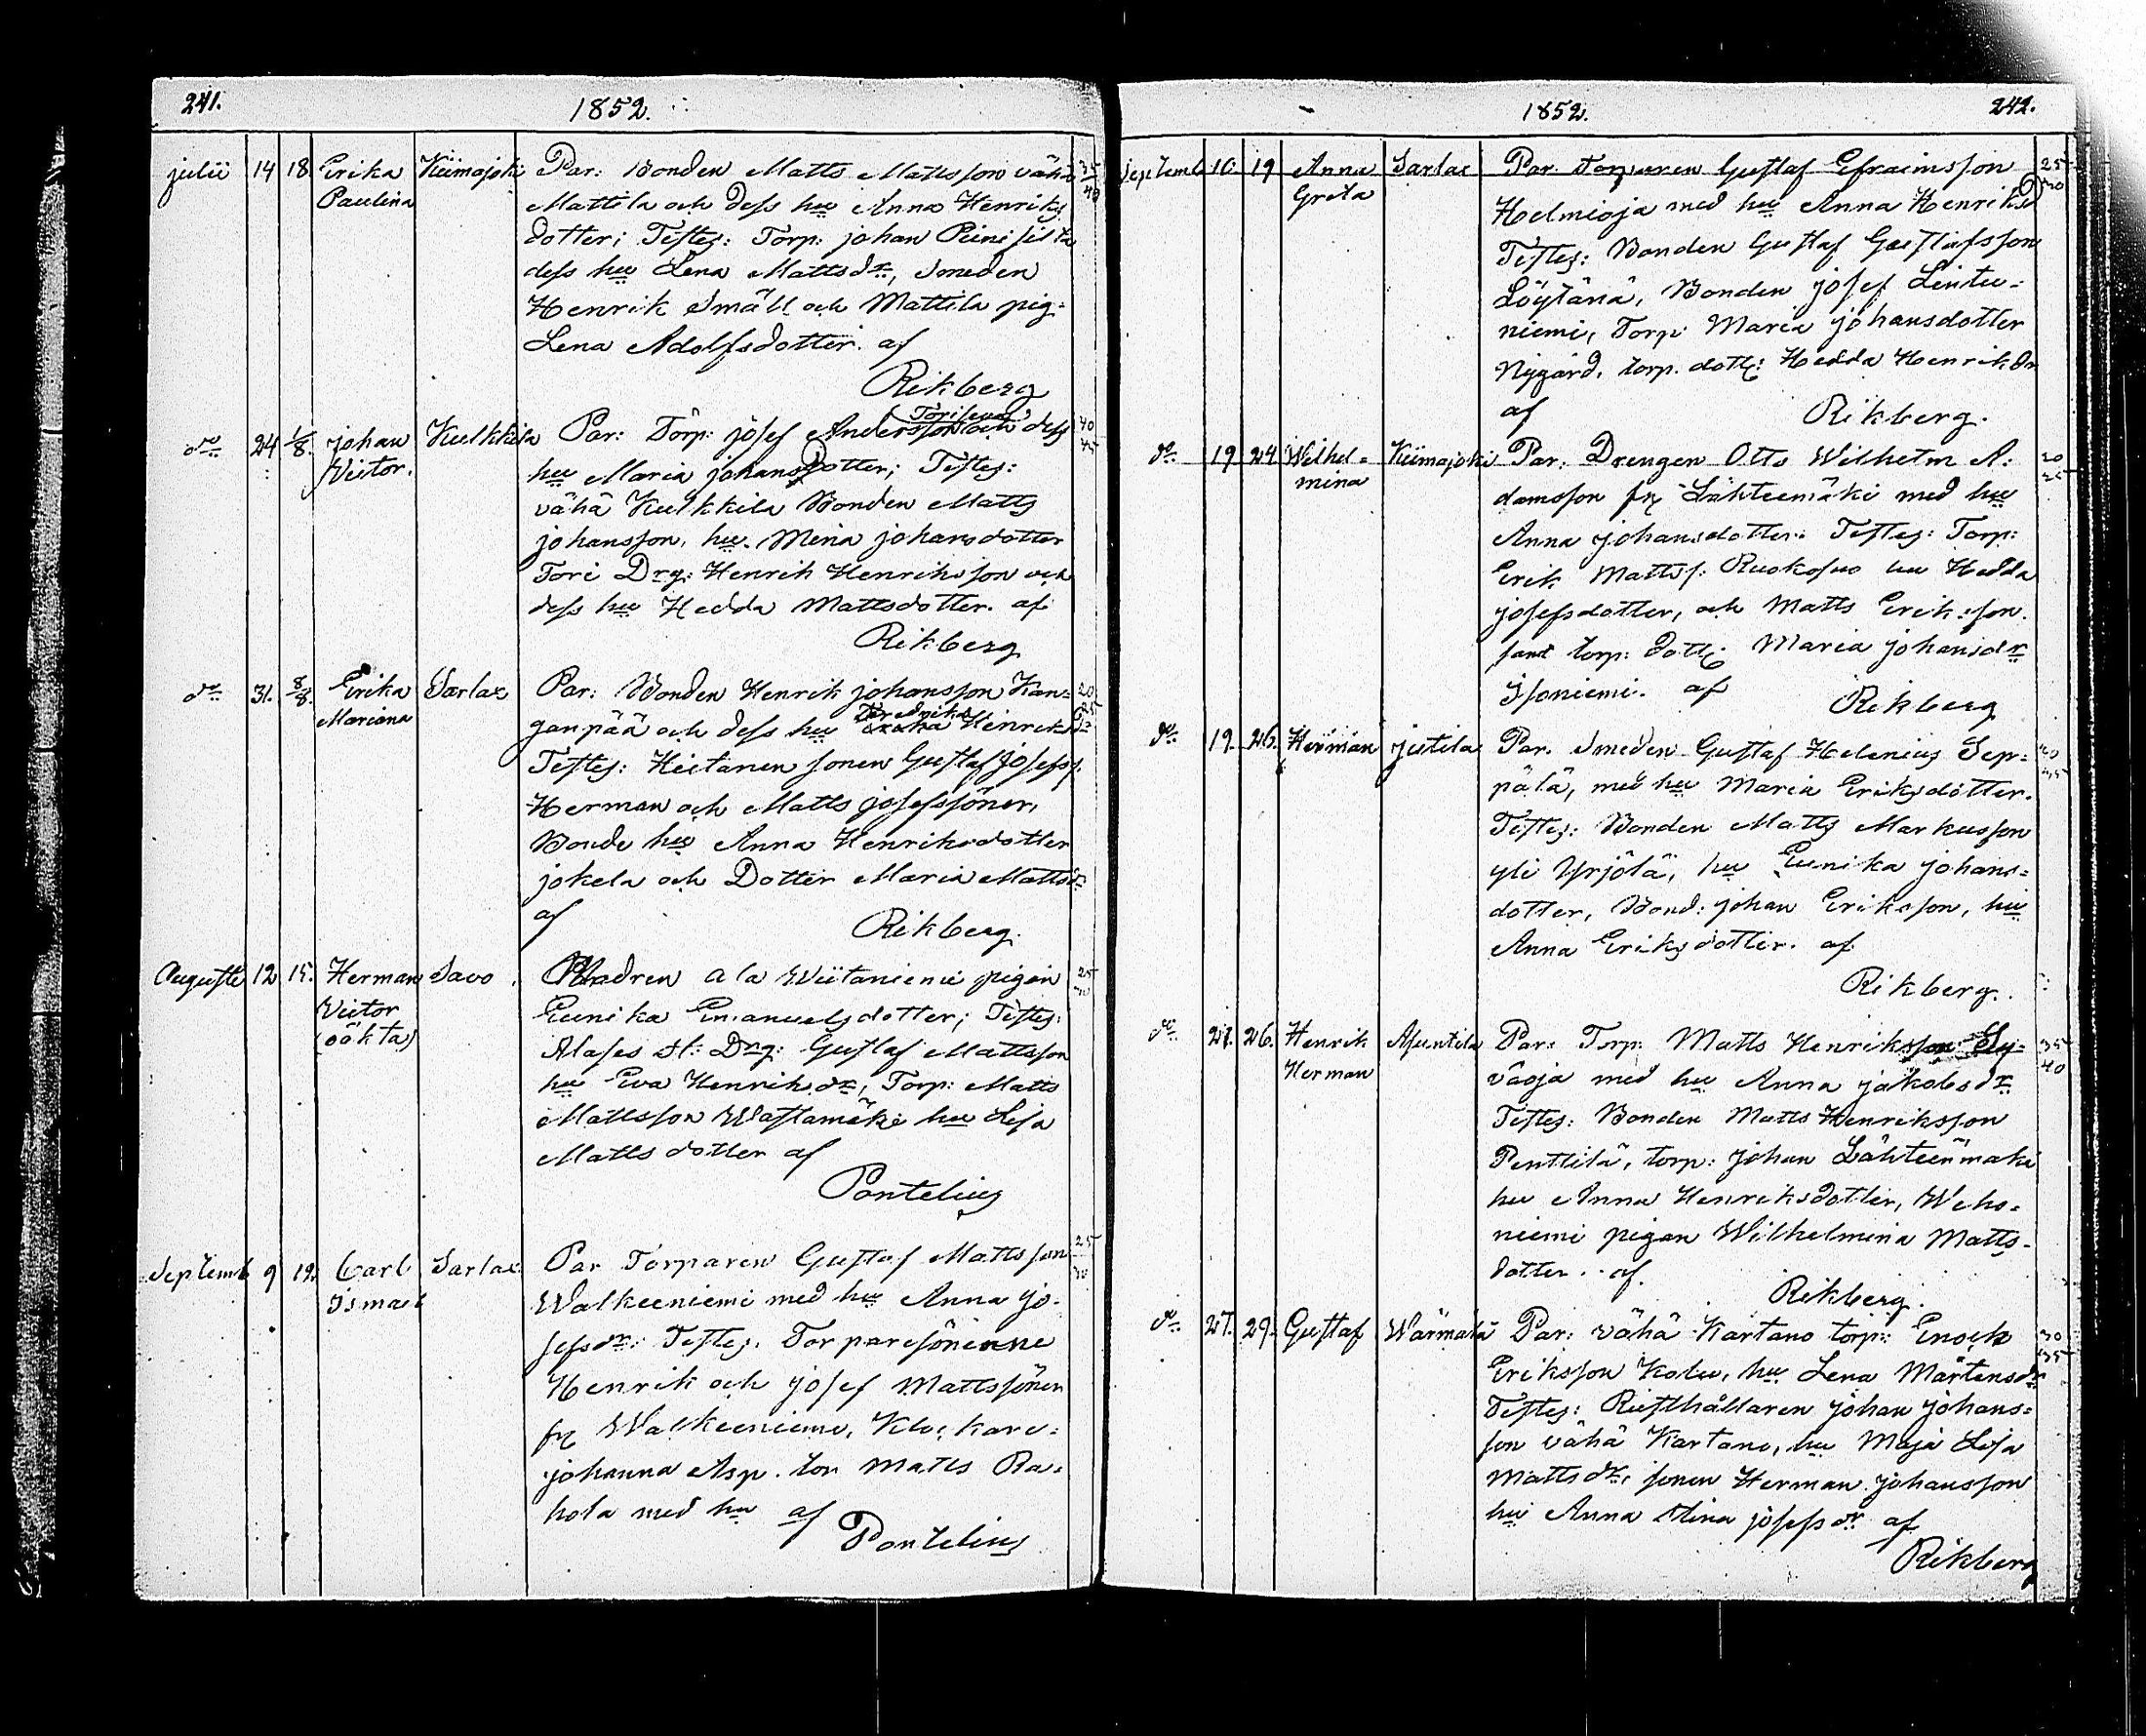 241.
1852.
julii 14 18. Erika Kiimajoki Par: Bonden Matts Mattsson vähä 35/40
Paulina Mattila och dess hu Anna Henriks
dotter; Testes: Torp: johan
dess hu Lena Mattsdr, Smeden
Henrik Smäll och Mattila pig:
Lena Adolfsdotter. af
Rikberg
do 24 1/8. johan Kulkkila Par: Torp: josef Andersson och dess 40/45
Victor. hu Maria johansdotter; Testes:
vähä Kulkkila Bonden Matts
johansson, hu. Mina johansdotter
Tori Drg: Henrik Henriksson och
dess hu Hedda Mattsdotter. af
Rikberg
do 31. 8/8. Erika Sarlax Par: Bonden Henrik johansson Kan= 20/25
Mariana ganpää och dess hu Fredrika Henriksdr
Testes: Hietanen sonen Gustaf Josefss.
Herman och Matts josefssöner,
Bonde hu Anna Henriksdotter
jokela och Dotter Maria Mattsdr
af Rikberg.
Augusti 12 15. Herman Savo. Modren Ala Wiitaniemi pigan 25/30
Victor Eunika Emanuelsdotter; Testes:
(oäkta) Alases st: Drg: Gustaf Mattsson
hu Eva Henriksdr, Torp: Matts
Mattsson Wastamäki hu Lisa
Mattsdotter af
Pontelius
Septemb 9 12. Carl Sarlax Par Torparen Gustaf Mattsson 25/30
Ismael Walkeeniemi med hu Anna jo-
sefsdr: Testes. Torparesönerne
Henrik och josef Mattssöner
fr Walkeeniemi, Klockare=
johanna Asp. tor Matts Ra=
hola med hu af
Pontelius
1852.
242.
Septemb 10. 19 Anna Sarlax Par. torparen Gustaf Efraimsson 25/30
Greta Helmioja med hu Anna Henriksd
Testes: Bonden Gustaf Gustafsson
Löytänä, Bonden josef Lintu=
niemi, Torp: Maria johansdotter
Nygård, torp. dott: Hedda Henriksdr
af Rikberg.
do 19 24 Wilhel= Kiimajoki Par: Drengen Otto Wilhelm A: 20/25
mina damsson fr Lähteemäki med hu
Anna johansdotter: Testes: Torp:
Erik Mattss: Ruokosuo hu Hedda
josefsdotter, och Matts Eriksson.
samt torp: dott: Maria johansdr
Isoniemi. af Rikberg
do 19. 26. Herman jutila Par. Smeden Gustaf Helenius Sep=
pälä, med hu Maria Eriksdotter.
Testes: Bonden Matts Markusson
yli Yrjölä, hu Eunika johans=
dotter, Bond: johan Eriksson, hu
Anna Eriksdotter. af
Rikberg.
do 21. 26. Henrik Asuntila Par: Torp: Matts Henriksson 35/40
Herman väoja med hu Anna jakobsdr
Testes: Bonden Matts Henriksson
Penttilä, torp: johan Lähteenmäki
hu Anna Henriksdotter, Weho=
niemi pigan Wilhelmina Matts-
dotter. af.
Rikberg.
do 27. 29. Gustaf Wärmälä Par: vähä Kartano torp: Enock 30/35
Eriksson Kolu, hu Lena Mårtensdr
Testes: Rusthållaren johan johans=
son vähä Kartano, hu Maja Lisa
Mattsdr, sonen Herman johansson
hu Anna Stina josefsdr af
Rikberg